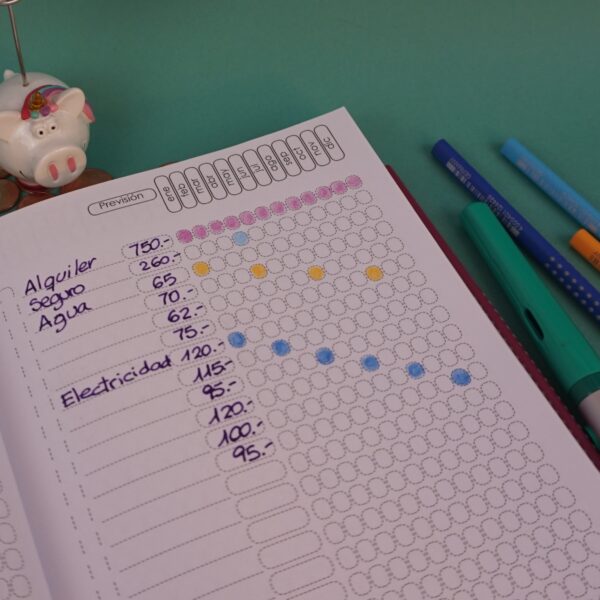 Previsión ene feb mar abr may jun jul ago sep oct nov dic
Alquiler 750.-
Seguro 260.-
Agua 65
70.-
62.-
75.-
Electricidad 120.-
115.-
95.-
120.-
100.-
95.-